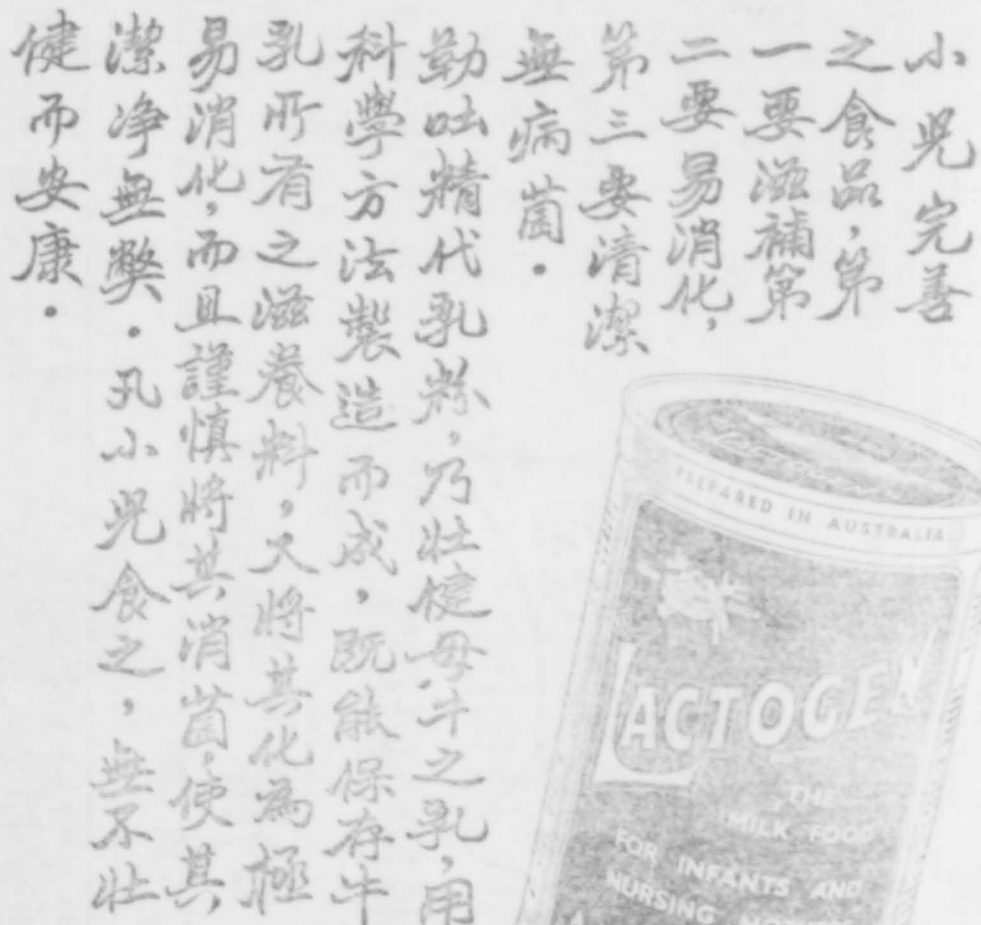 小兒完善
之食品,第
一要滋補第
二要易消化,
第三要清潔
無病菌.
勒吐精代乳粉,乃壯健母牛之乳,用
科學方法製造而成,既能保存牛
乳所有之滋養料,又將其化為極
易消化,而且謹慎將其消菌,使其
潔净無弊.凡小兒食之,無不壯
健而安康.
PREPARED IN AUSTRALIA
LACTOGEN
THE
MILK FOOD
FOR INFANTS AND
NURSING